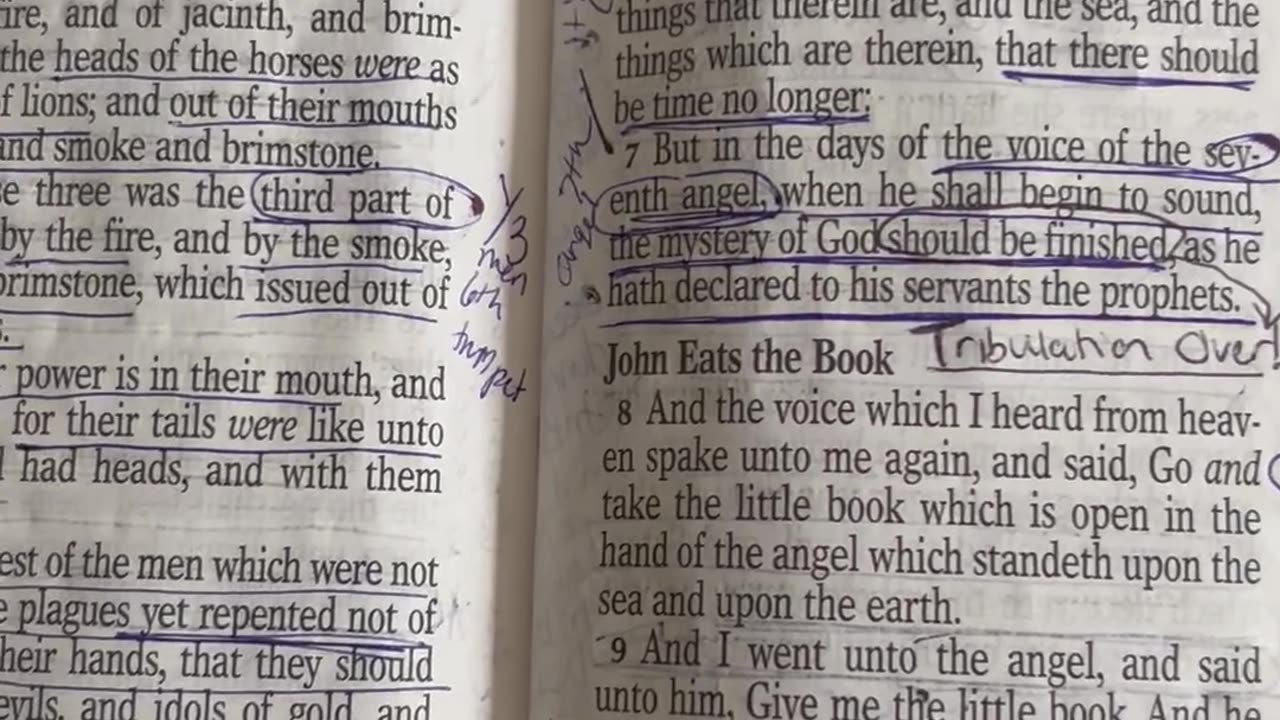 ire, and of jacinth, and brim-
the heads of the horses were as
f lions; and out of their mouths
and smoke and brimstone.
e three was the third part of
by the fire, and by the smoke,
brimstone, which issued out of
s.
power is in their mouth, and
for their tails were like unto
had heads, and with them
est of the men which were not
e plagues yet repented not of
heir hands, that they should
evils, and idols of gold, and
1/3
men
6th
trumpet
7th
angel
things that therein are, and the sea, and the
things which are therein, that there should
be time no longer:
7 But in the days of the voice of the sev-
enth angel, when he shall begin to sound,
the mystery of God should be finished, as he
hath declared to his servants the prophets.
Tribulation Over!
John Eats the Book
8 And the voice which I heard from heav-
en spake unto me again, and said, Go and
take the little book which is open in the
hand of the angel which standeth upon the
sea and upon the earth.
9 And I went unto the angel, and said
unto him, Give me the little book. And he